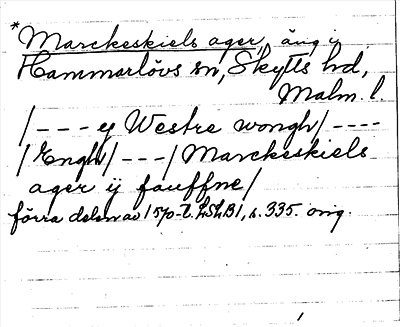 *Marckeskiels ager, äng i
Hammarlövs sn, Skytts hd,
Malm. l.
/--- ij Westre wongh/----
/Engh/---/Marckeskiels
ager ij fauffne/
förra delen av 1570-t. LSLB1, s. 335. orig.